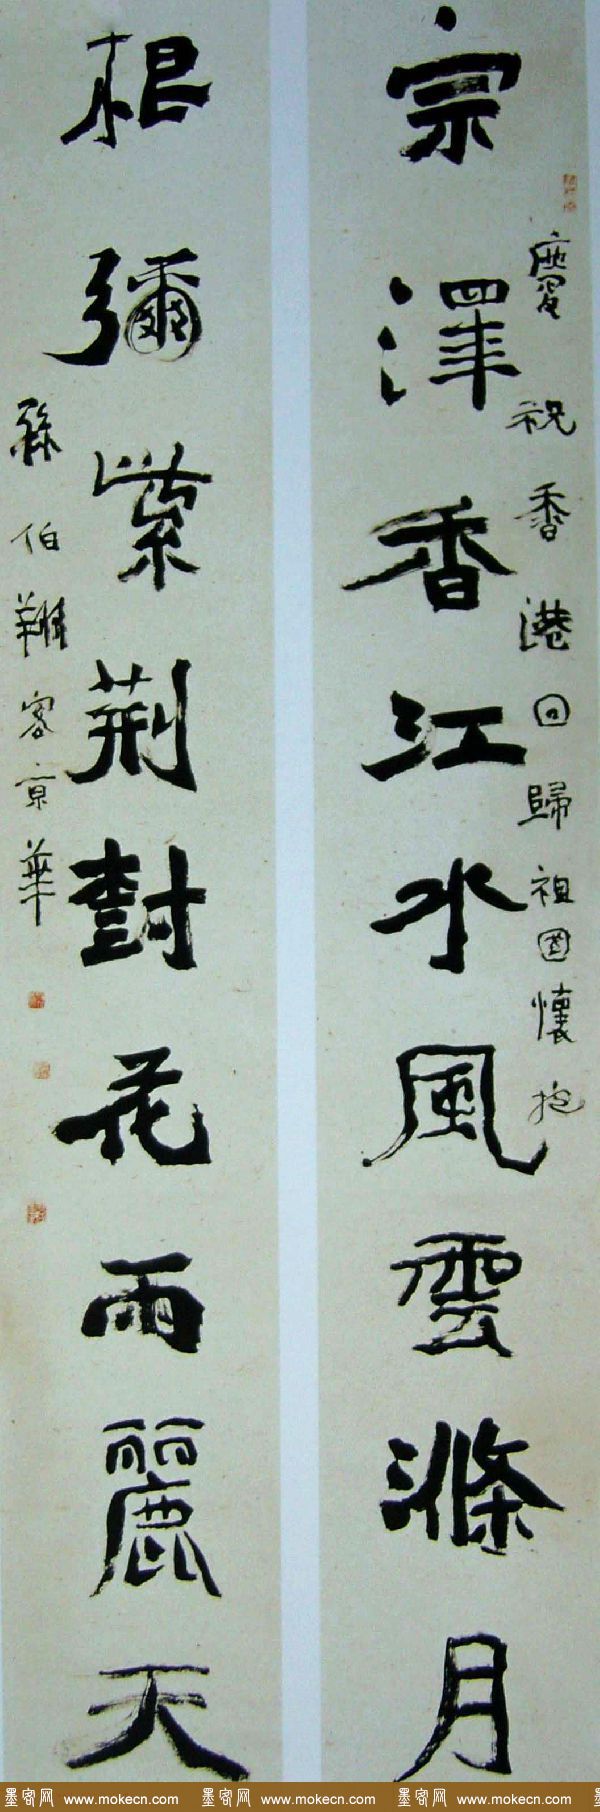 宗澤香江水風雲滌月
慶祝香港回歸祖國懷抱
根彌紫荆對花雨麗天
孫伯翔客京華
墨客网 www.mokecn.com 墨客网 www.mokecn.com 墨客网 www.mokecn.com